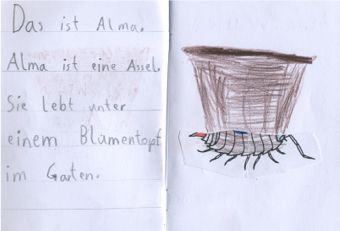 Das ist Alma.
Alma ist eine Assel.
Sie lebt unter
einem Blumentopf
im Garten.